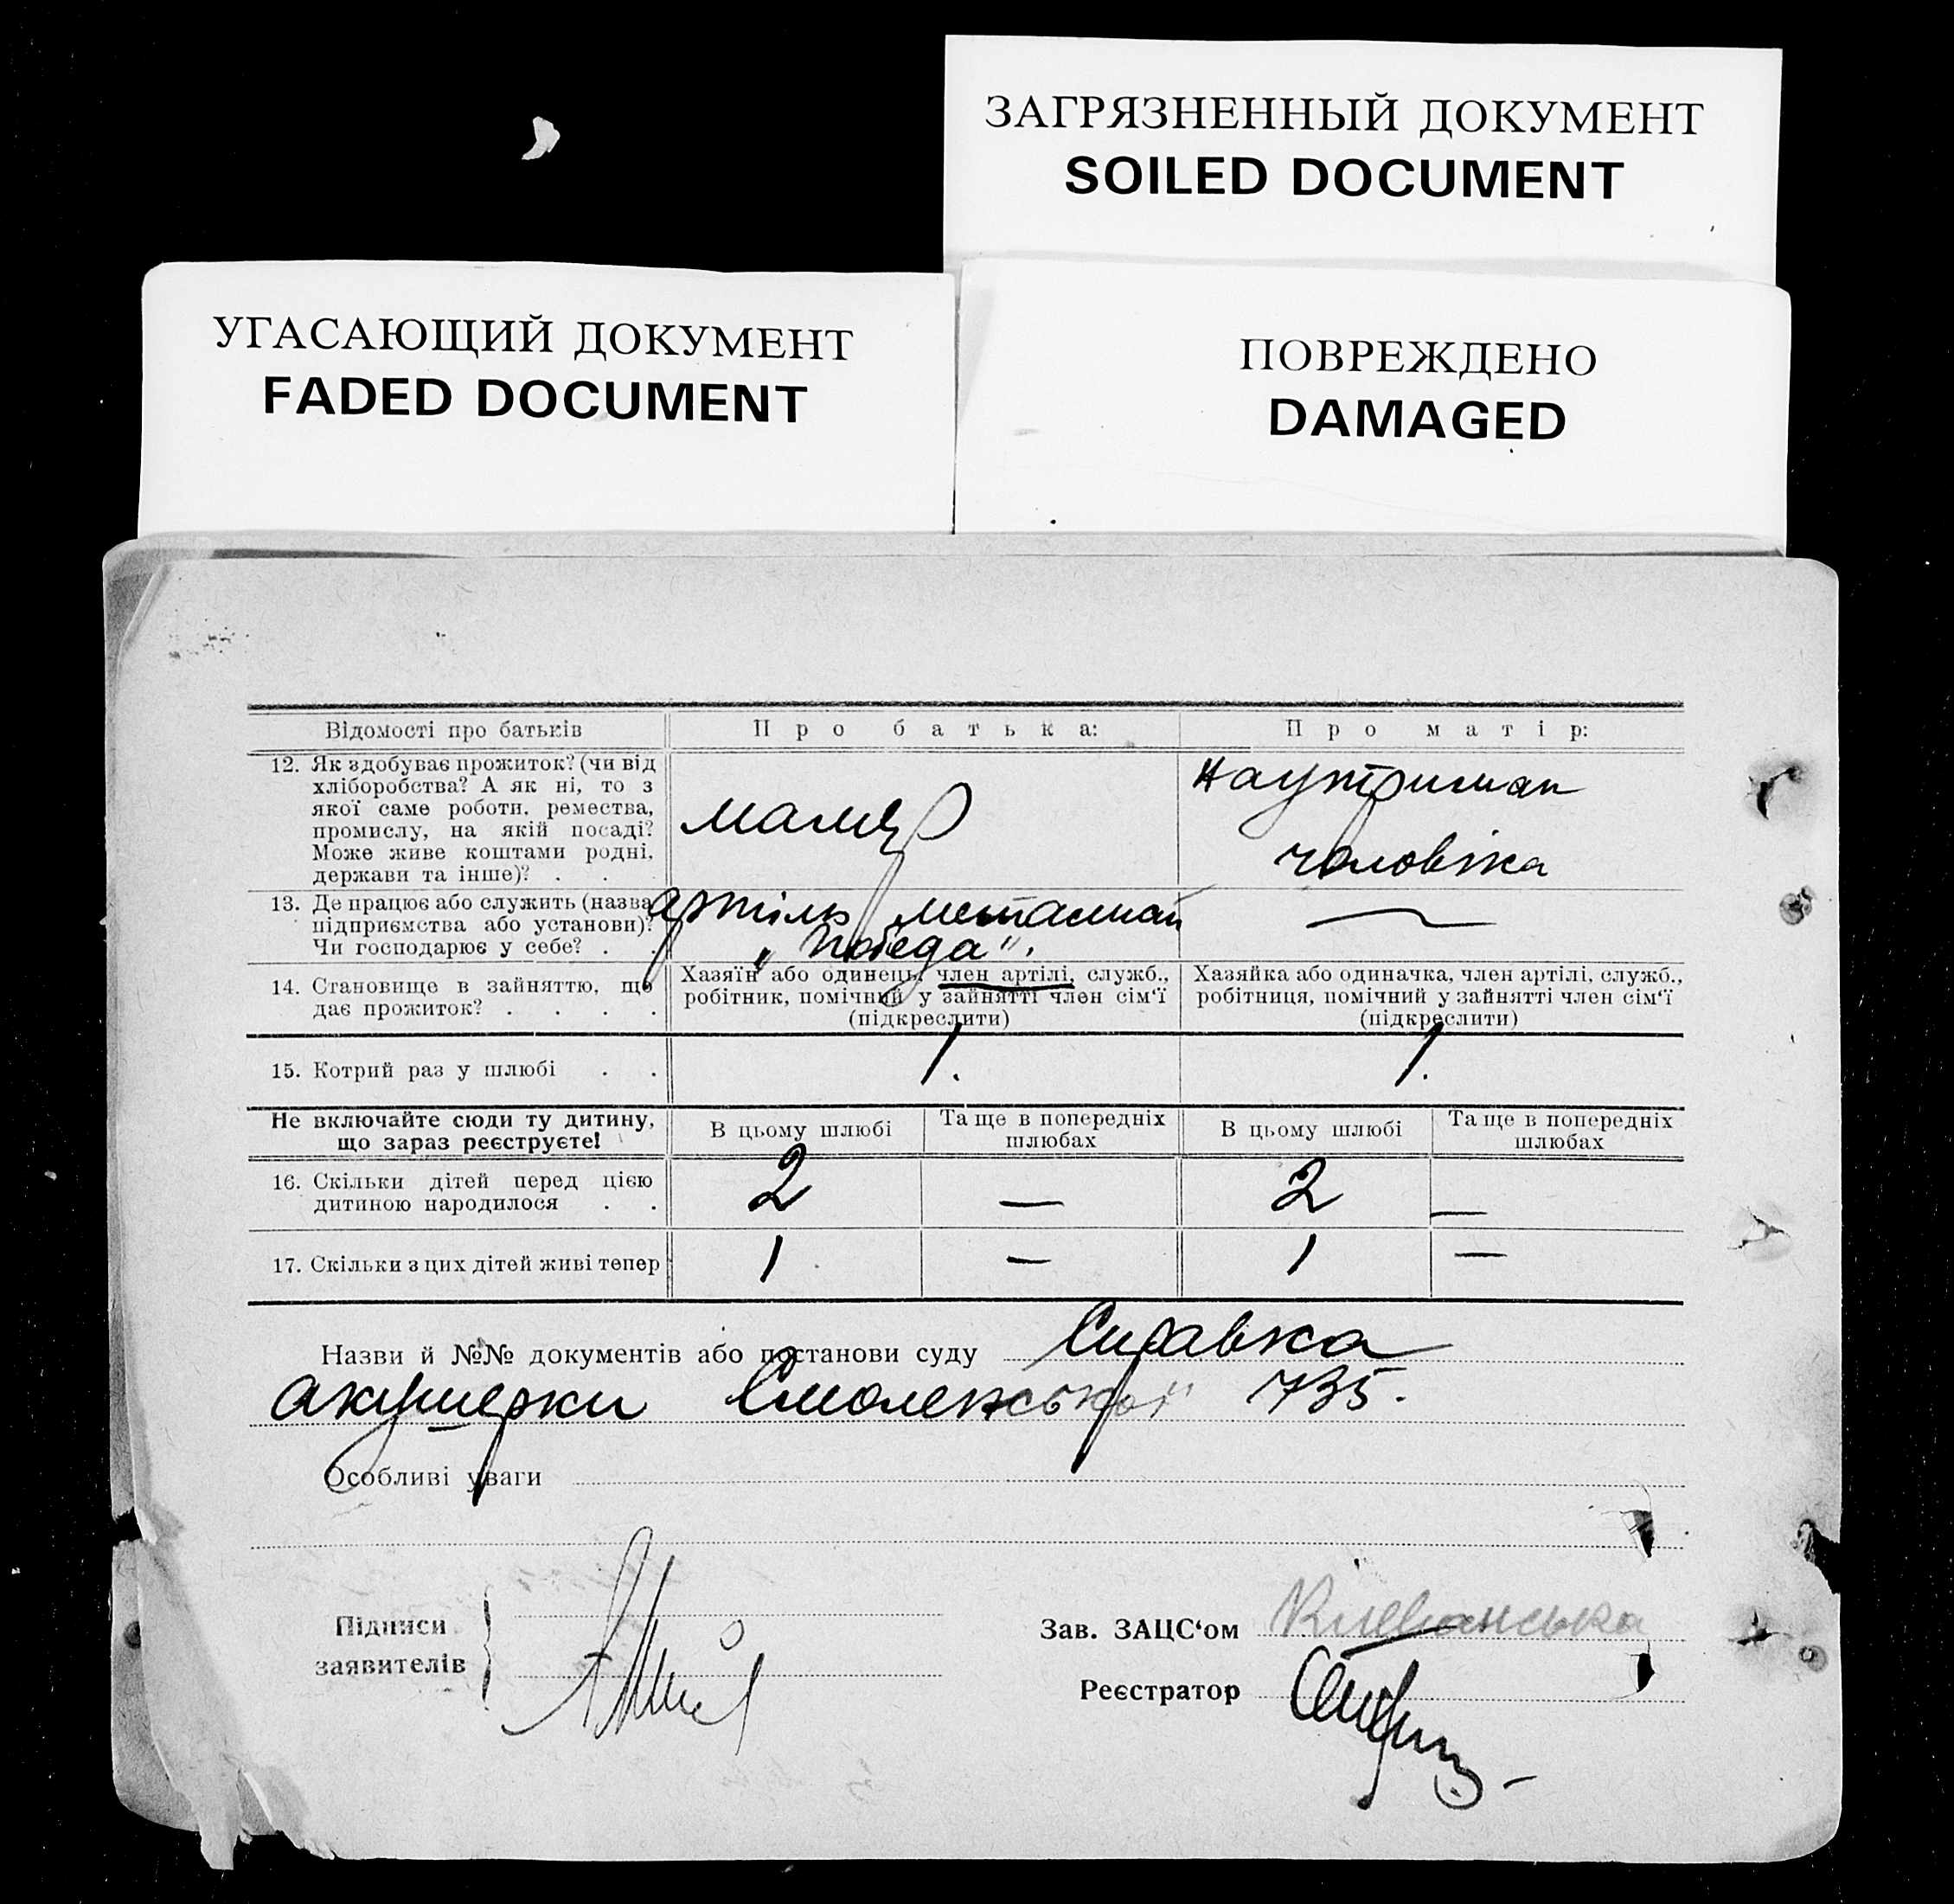 ЗАГРЯЗНЕННЫЙ ДОКУМЕНТ
SOILED DOCUMENT
УГАСАЮЩИЙ ДОКУМЕНТ
FADED DOCUMENT
ПОВРЕЖДЕНО
DAMAGED
Відомості про батьків
Про батька:
Про матір:
12. Як здобуває прожиток? (чи від
хліборобства? А як ні, то з
якої саме роботи, ремества,
промислу, на якій посаді?
Може живе коштами родні,
держави та інше)? . .
маляр
на утриман
чоловіка
13. Де працює або служить (назва
підприємства або установи)?
Чи господарює у себе? . .
артіль
„Победа".
—
14. Становище в зайняттю, що
дає прожиток? . . . .
Хазяїн або одинець, член артілі, служб.,
робітник, помічний у зайнятті член сім'ї
(підкреслити)
Хазяйка або одиначка, член артілі, служб.,
робітниця, помічний у зайнятті член сім'ї
(підкреслити)
15. Котрий раз у шлюбі . .
1.
1.
Не включайте сюди ту дитину,
що зараз реєструєте!
В цьому шлюбі
Та ще в попередніх
шлюбах
В цьому шлюбі
Та ще в попередніх
шлюбах
16. Скільки дітей перед цією
дитиною народилося . .
2
—
2
—
17. Скільки з цих дітей живі тепер
1
—
1
—
Назви й №№ документів або постанови суду Справка
акушерки Смоленської 735.
Особливі уваги
Підписи
заявителів
Зав. ЗАЦС'ом
Реєстратор